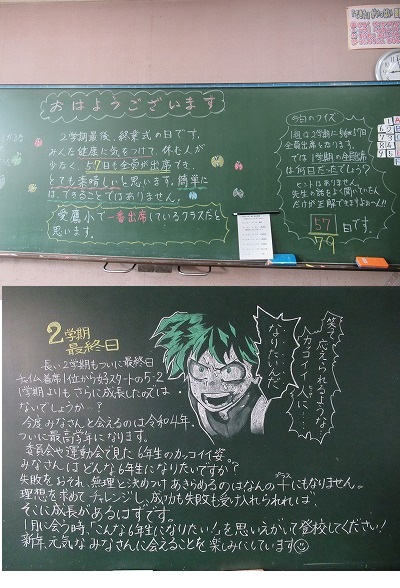 おはようございます
2学期最後、終業式の日です。
みんな健康に気をつけて、休む人が
少なく、57日も全員が出席でき、
とても素晴しいと思います。簡単に
はできることではありません！
愛鷹小で一番出席しているクラスだと
思います。
今日のクイズ
1組は2学期に
全員出席となります。
では1学期の全員出席
は何日だったでしょう？
ヒントはありません
先生の話をよく聞いていた人
だけが正解できますよぉ〜!!
57日です。
79
2学期
最終日
長い、2学期もついに最終日
チャイム着席1位から好スタートの5-2
1学期よりもさらに成長したのでは
ないでしょうか？
今度みなさんと会えるのは令和4年。
ついに最高学年になります。
委員会や運動会で見た6年生のカッコイイ姿
みなさんはどんな6年生になりたいですか？
失敗をおそれ、無理と決めつけあきらめるのはなんの＋にもなりません。
プラス
理想を求めてチャレンジし、成功も失敗も受け入れられれば、
そこに成長があるはずです。
1月に会う時、「こんな6年生になりたい！」を思いえがいて登校してください！
新年、元気なみなさんに会えることを楽しみにしています
笑って応えられるような
カッコイイ人に…
なりたいんだ